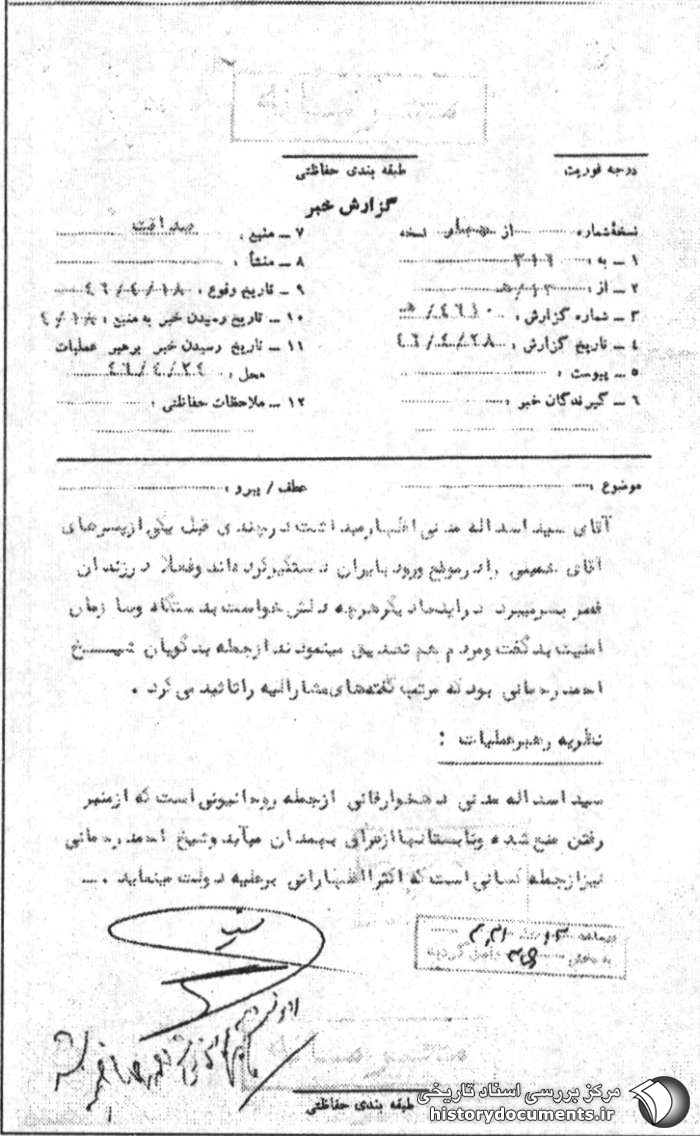 محرمانه
درجه فوریت
طبقه بندی حفاظتی
گزارش خبر
نسخهٔ شماره از چهار نسخه
۱ ــ به : ۳۱۶
۲ ــ از : ۱۲ / ه
۳ ــ شماره گزارش :
۴ ــ تاریخ گزارش : ۴۶/۴/۲۸
۵ ــ پیوست :
۶ ــ گیرندگان خبر :
۷ ــ منبع : صداقت
۸ ــ منشأ :
۹ ــ تاریخ وقوع : ۴۶/۴/۱۸
۱۰ ــ تاریخ رسیدن خبر به منبع : ۴/۱۸
۱۱ ــ تاریخ رسیدن خبر برهبر عملیات
محل : ۴۶/۴/۲۴
۱۲ ــ ملاحظات حفاظتی :
موضوع :
عطف / پیرو :
آقای سید اسد اله مدنی اظهار میداشت در چندی قبل یکی از پسرهای
آقای خمینی را در موقع ورود بایران دستگیر کرده اند و فعلا در زندان
قصر بسر میبرد در اینجا دیگر هرچه دلش خواست بدستگاه و سازمان
امنیت بد گفت و مردم هم تصدیق مینمودند از جمله بدگویان شیخ
احمد رحمانی بود که مرتب گفته های مشارالیه را تائید می کرد .
نظریه رهبر عملیات :
سید اسد اله مدنی دهخوارقانی از جمله روحانیونی است که از منبر
رفتن منع شده و تابستانها از عراق بهمدان میآید و شیخ احمد رحمانی
نیز از جمله کسانی است که اکثرا اظهاراتش برعلیه دولت مینماید . ــ
طبقه بندی حفاظتی
مرکز بررسی اسناد تاریخی
historydocuments.ir